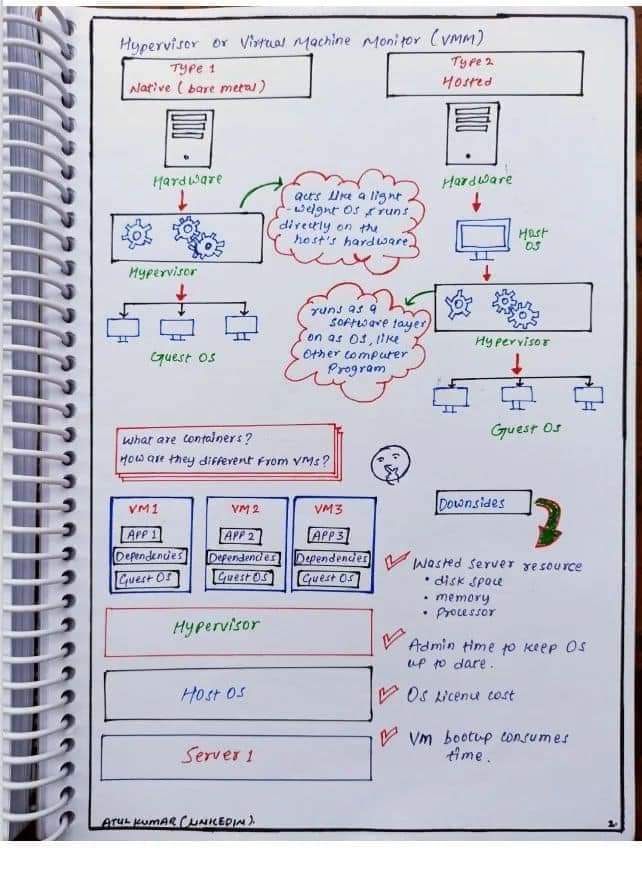 Hypervisor or Virtual Machine Monitor (VMM)
Type 1
Native (bare metal)
Type 2
Hosted
Hardware
Hardware
acts like a light
-weight OS & runs
directly on the
host's hardware
Host
OS
Hypervisor
runs as a
software layer
on as OS, like
other computer
Program
Hypervisor
Guest OS
Guest OS
What are containers?
How are they different from VMs?
VM1
APP 1
Dependencies
Guest OS
VM2
APP 2
Dependencies
Guest OS
VM3
APP 3
Dependencies
Guest OS
Hypervisor
Host OS
Server 1
Downsides
Wasted server resource
• disk space
• memory
• processor
Admin time to keep OS
up to date.
OS Licence cost
VM bootup consumes
time.
ATUL KUMAR (LINKEDIN).
2